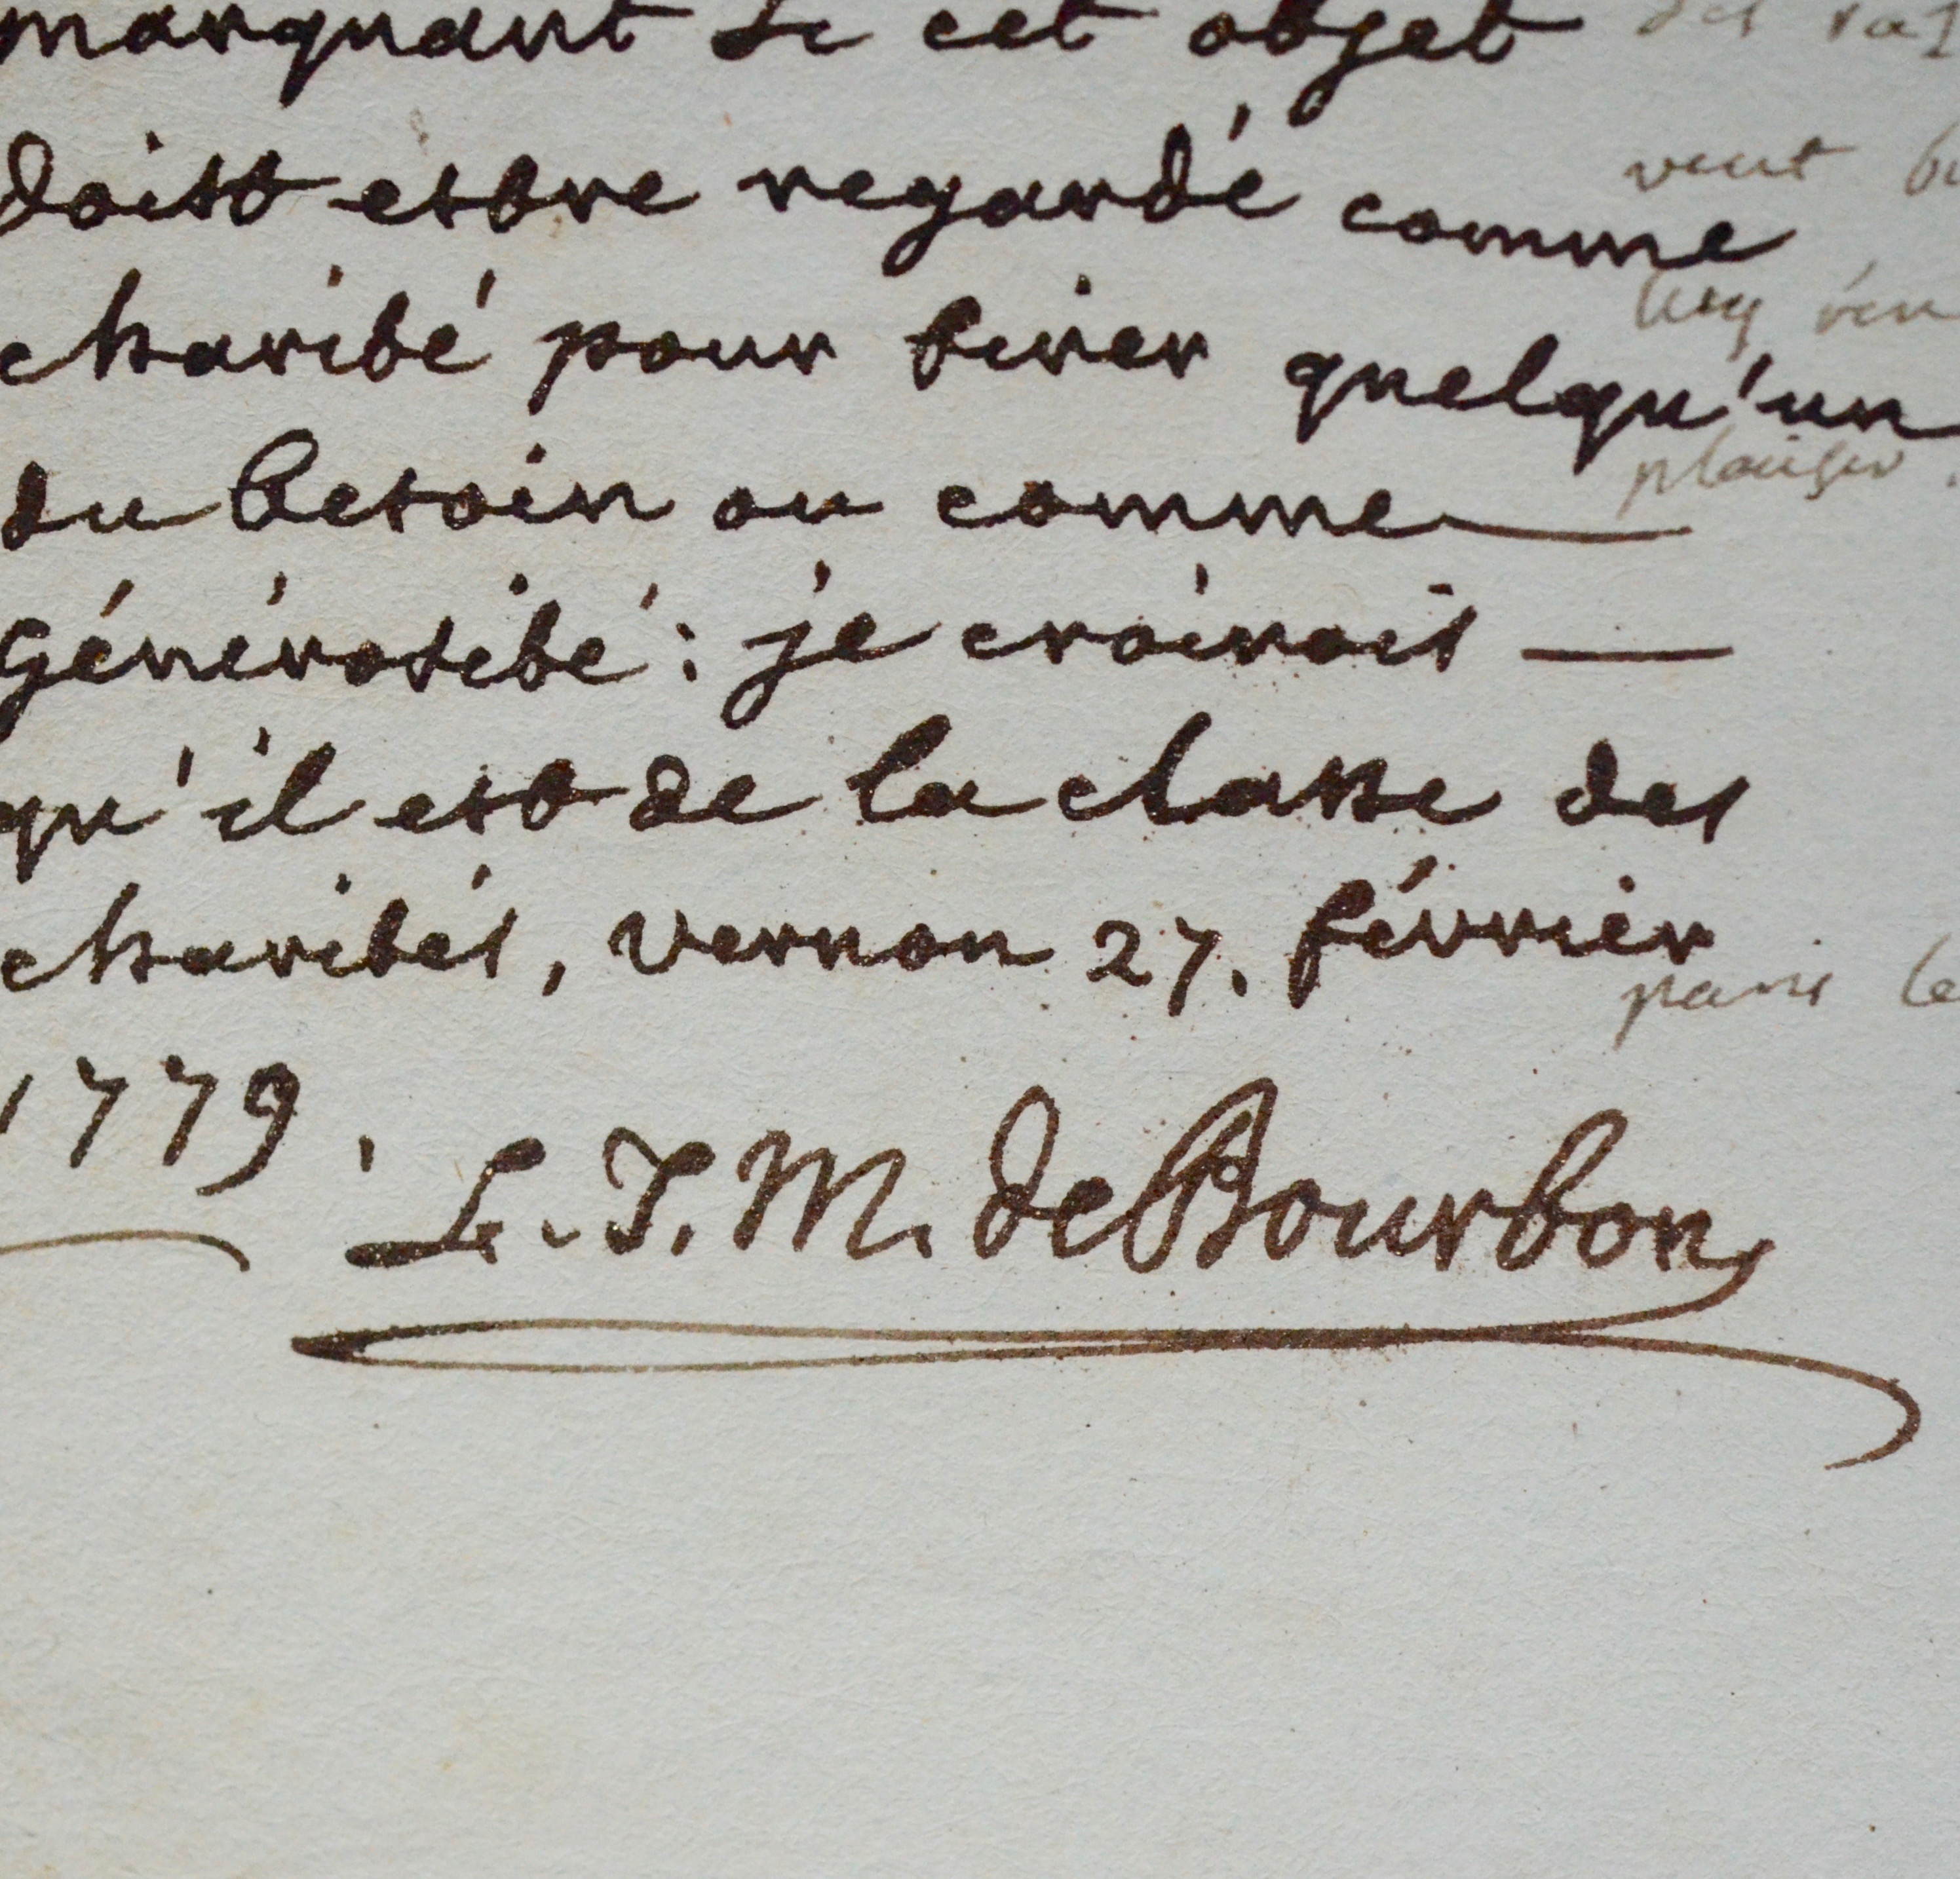 marquant si cet objet
doist estre regardé comme
charité pour tirer quelqu'un
du besoin ou comme —
générosité: je croirois —
qu'il est de la classe des
charités, vernon 27. février
1779.
L. J. M. de Bourbon
veut
plaisir